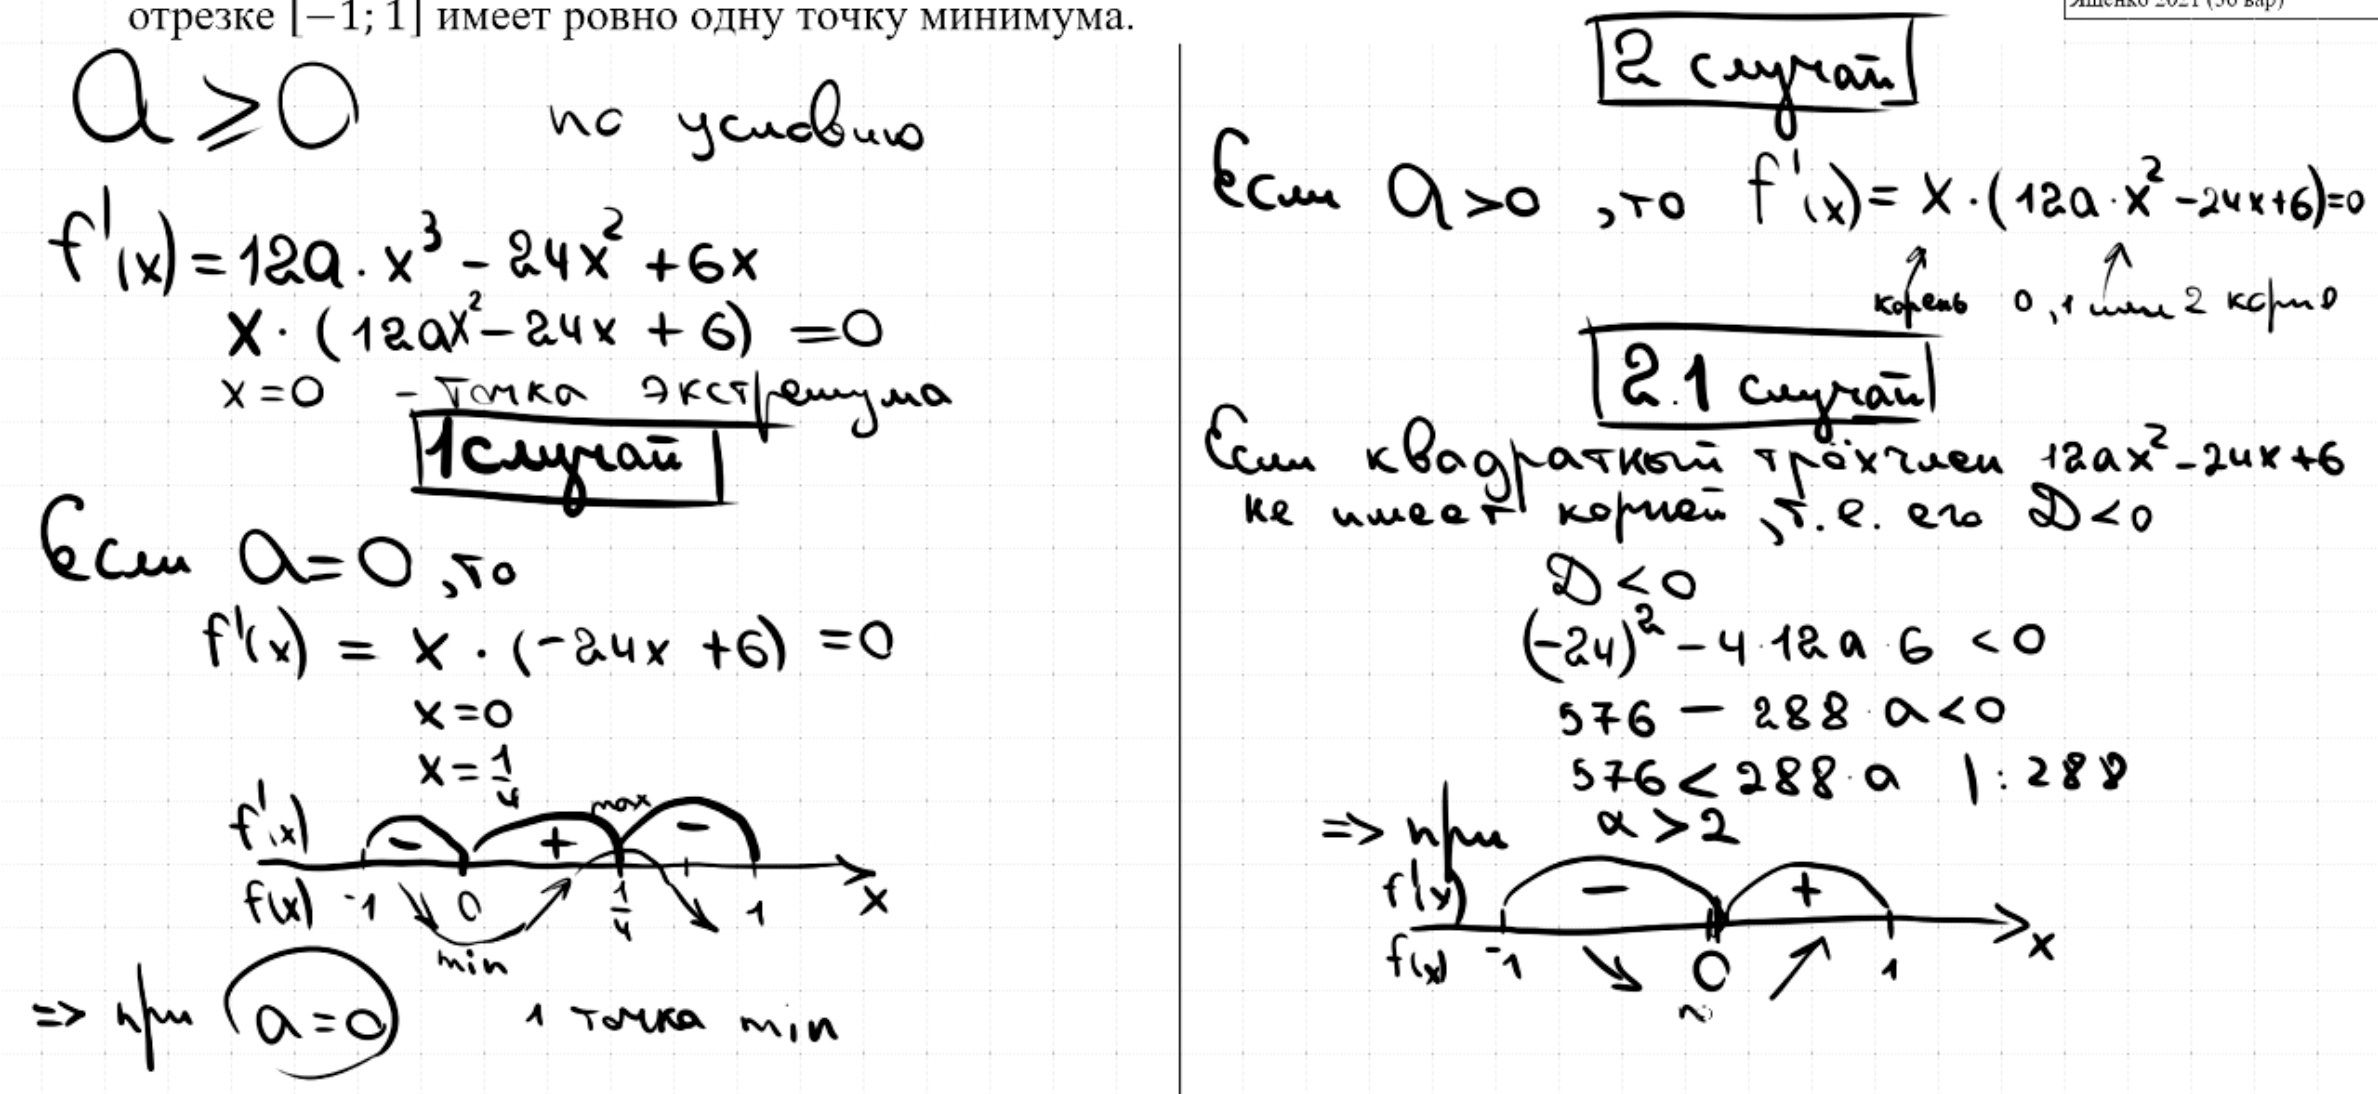 отрезке [−1; 1] имеет ровно одну точку минимума.
a ⩾ 0 по условию
f'(x) = 12a · x³ - 24x² + 6x
x · (12ax² - 24x + 6) = 0
x = 0 - точка экстремума
1 случай
Если a = 0, то
f'(x) = x · (-24x + 6) = 0
x = 0
x = 1/4
f'(x) - + max -
f(x) -1 0 1/4 1 x
min
=> при a = 0 1 точка min
Ященко 2021 (36 вар)
2 случай
Если a > 0, то f'(x) = x · (12a · x² - 24x + 6) = 0
корень 0, 1 или 2 корня
2.1 случай
Если квадратный трёхчлен 12ax² - 24x + 6
не имеет корней, т.е. его D < 0
D < 0
(-24)² - 4 · 12a · 6 < 0
576 - 288 · a < 0
576 < 288 · a | : 288
=> при a > 2
f'(x) - +
f(x) -1 0 1 x